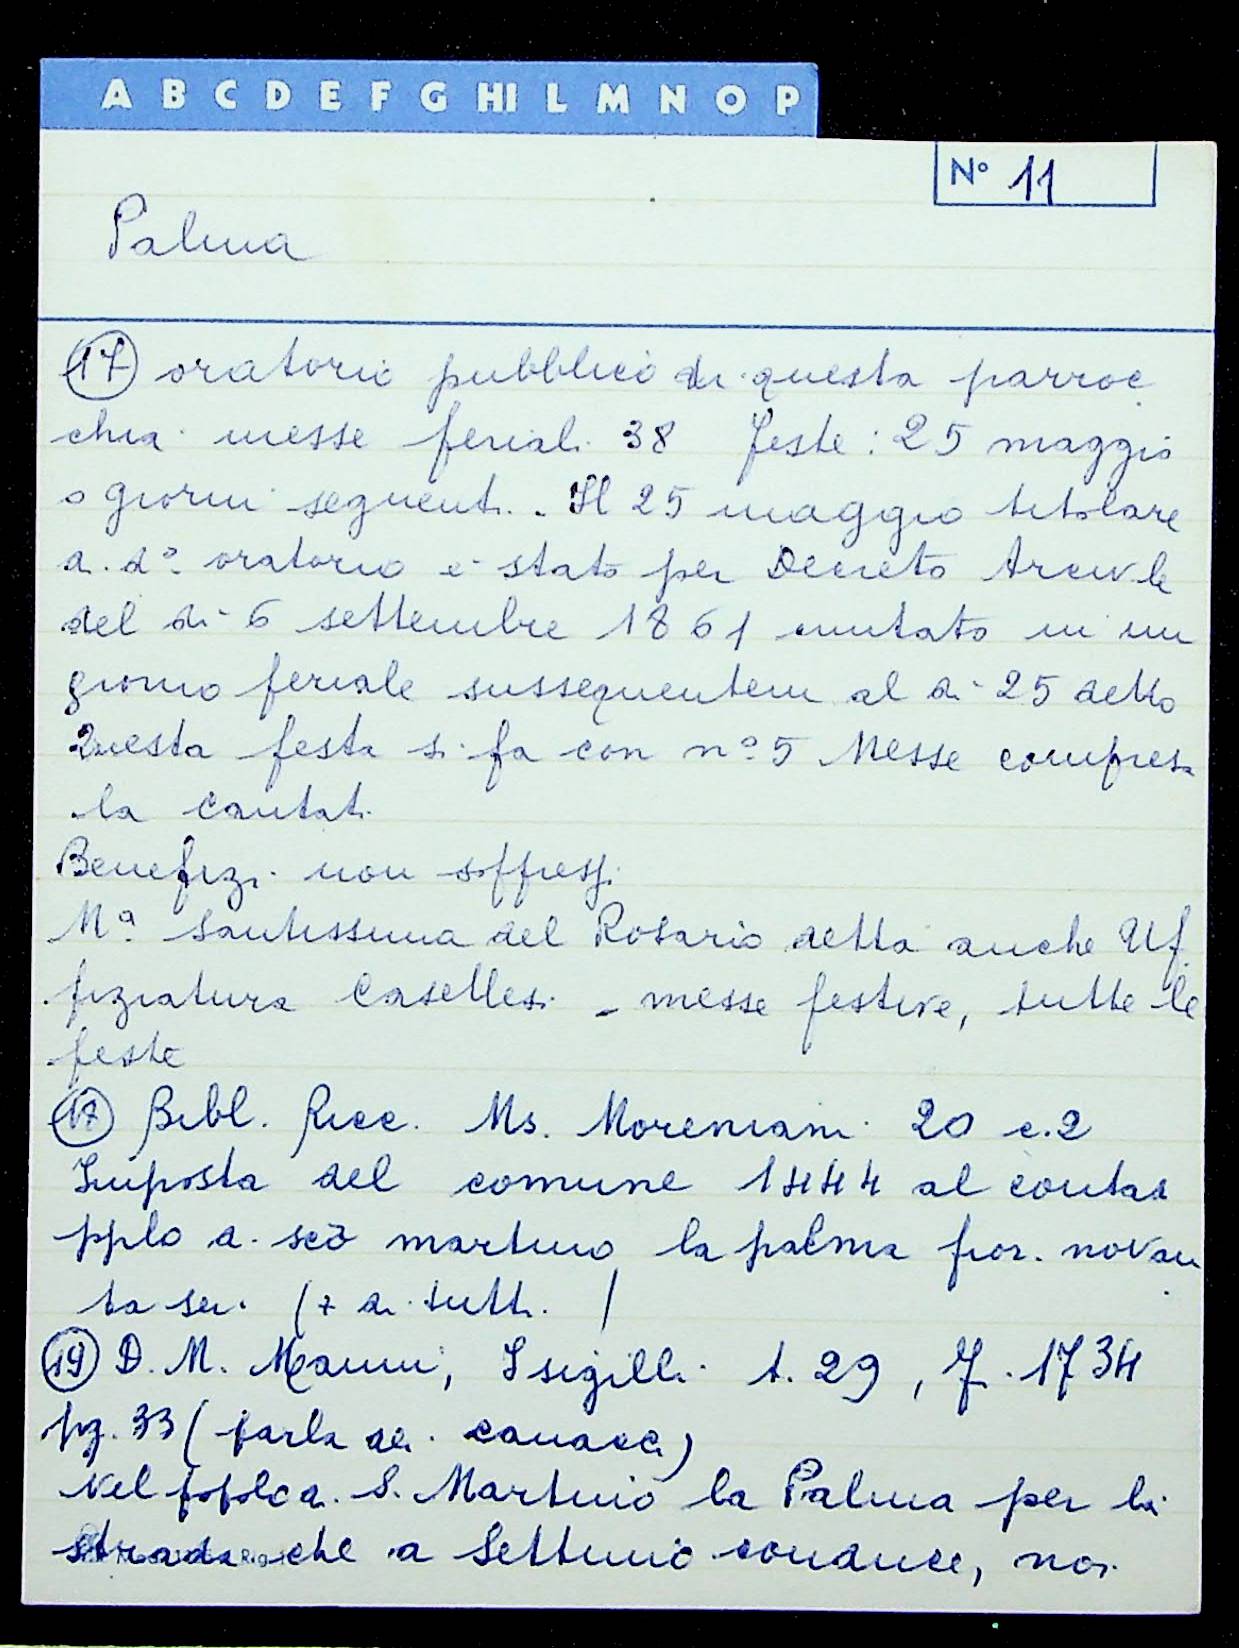 A B C D E F G HI L M N O P
N° 11
Palma
(17) oratorio pubblico di questa parroc
chia messe feriali 38 feste: 25 maggio
o giorni seguenti. Il 25 maggio titolare
di d° oratorio è stato per Decreto Arciv.le
del dì 6 settembre 1861 mutato in un
giorno feriale sussequentem al dì 25 detto
Questa festa si fa con n° 5 Messe compresa
la cantat.
Benefizi non soffressi
Mª Santissima del Rosario detta anche Uf
fiziatura Casellesi - messe festive, tutte le
feste
Bibl. Ricc. Ms. Moreniani 20 c.2
Imposta del comune 1444 al contad
pplo di scõ martino la palma fior. novan
ta sei (7 di tutti )
(19) D. M. Manni, I sigilli t. 29, F. 1734
pg. 33 (parla dei canacci)
Nel popolo di S. Martino la Palma per la
strada che a Settimo conduce, noi